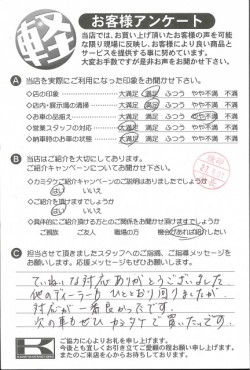 軽
お客様アンケート
当店では、お買い上げ頂いたお客様の声を可能
な限り現場に反映し、お客様により良い商品と
サービスを提供する事に努めています。
大変お手数ですが是非お声をお聞かせ下さい。
A 当店を実際にご利用になった印象をお聞かせ下さい。
◇店の印象 大満足 満足 ふつう やや不満 不満
◇店内・展示場の清掃 大満足 満足 ふつう やや不満 不満
◇お車の品揃え 大満足 満足 ふつう やや不満 不満
◇営業スタッフの対応 大満足 満足 ふつう やや不満 不満
◇納車時のお車の状態 大満足 満足 ふつう やや不満 不満
B 当店はご紹介を大切にしております。
ご紹介キャンペーンについてお聞かせ下さい。
◇カミタケご紹介キャンペーンのご説明はありましたでしょうか
はい いいえ
◇ご紹介を頂けますでしょうか
はい いいえ
◇具体的にご紹介頂ける方とのご関係をお聞かせ頂けますでしょうか
ご親族 ご友人 職場の方 機会があれば紹介したい
C 担当させて頂きましたスタッフへのご指摘、ご指導メッセージを
お願いします。応援メッセージもぜひお願いします。
ていねいな対応ありがとうございました
他のディーラーも ひととおり回りましたが
対応が一番良かったです。
次の車もぜひ カミタケで買いたいです。
ご協力に心よりお礼を申し上げます。
今後とも宜しくお引き立てご愛顧の程お願い申し上げます。
またのご来店を心からお待ちしております。